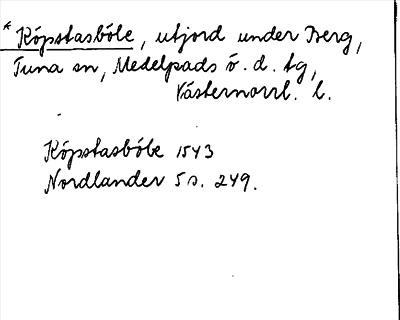 * Köpstasböle, utjord under Berg,
Tuna sn, Medelpads ö. d. tg,
Västernorrl. l.
Köpstasböle 1543
Nordlander 5 s. 249.